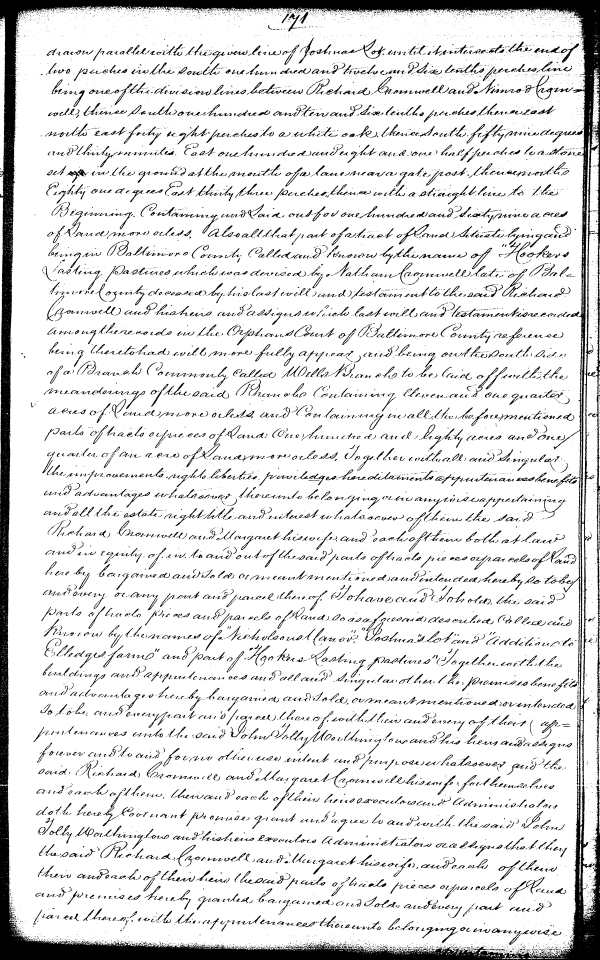 171
drawn parallel with the given line of Joshuas Lot until it intersects the end of
two perches in the south one hundred and twelve and six tenths perches line
being one of the division lines between Richard Cromwell and Nimrod Crom=
well, thence South one hundred and ten and six tenths perches thence east
north east forty eight perches to a white oak, thence south fifty nine degrees
and thirty minutes East one hundred and eight and one half perches to a stone
set in the ground at the mouth of a lane near a gate post, thence north
Eighty one degrees East thirty three perches, thence with a straight line to the
Beginning. Containing and Laid out for one hundred and sixty nine acres
of Land more or less. Also all that part of a tract of Land Situate lying and
being in Baltimore County Called and known by the name of "Hookers
Lasting pastures which was devised by Nathan Cromwell late of Bal=
timore County deceased by his last will and testament to the said Richard
Cromwell and his heirs and assigns which last will and testament is recorded
among the records in the Orphans Court of Baltimore County reference
being thereto had will more fully appear and being on the South Side
of a Branch Commonly Called Mills Branch to be laid off with the
meanderings of the said Branch Containing Eleven and one quarter
acres of Land more or less and Containing in all the before mentioned
parts of tracts or pieces of Land One hundred and Eighty acres and one
quarter of an acre of Land, more or less, Together with all and Singular
the improvements, rights liberties priviledges hereditaments appurtenances benefits
and advantages whatsoever, thereunto belonging or in any wise appertaining
and all the estate right title and interest whatsoever of them the said
Richard Cromwell and Margaret his wife and each of them both at law
and in equity of in to and out of the said parts of tracts pieces or parcels of Land
hereby bargained and Sold or meant mentioned and intended hereby so to be
and every or any part and parcel thereof To have and To hold, the said
parts of tracts pieces and parcels of Land so as aforesaid described Called and
known by the names of "Nicholsons Manor", "Joshua's lot" and "Addition to
Elledges farm" and part of "Hookers Lasting pastures" Together with the
buildings and appurtenances and all and Singular other the premises benefits
and advantages hereby bargained and Sold, or meant mentioned or intended
so to be, and every part and parcel thereof with their and every of their ap=
purtenances unto the said John Tolly Worthington and his heirs and assigns
forever and to and for no other use intent and purpose whatsoever, and the
said Richard Cromwell and Margaret Cromwell his wife for themselves
and each of them, their and each of their heirs executors and Administrators
doth hereby Covenant promise grant and agree to and with the said John
Tolly Worthington and his heirs executors Administrators or assigns that they
the said Richard Cromwell and Margaret his wife, and each of them
their and each of their heirs the said parts of tracts pieces or parcels of Land
and premises hereby granted bargained and Sold and every part and
parcel thereof, with the appurtenances thereunto belonging or in anywise